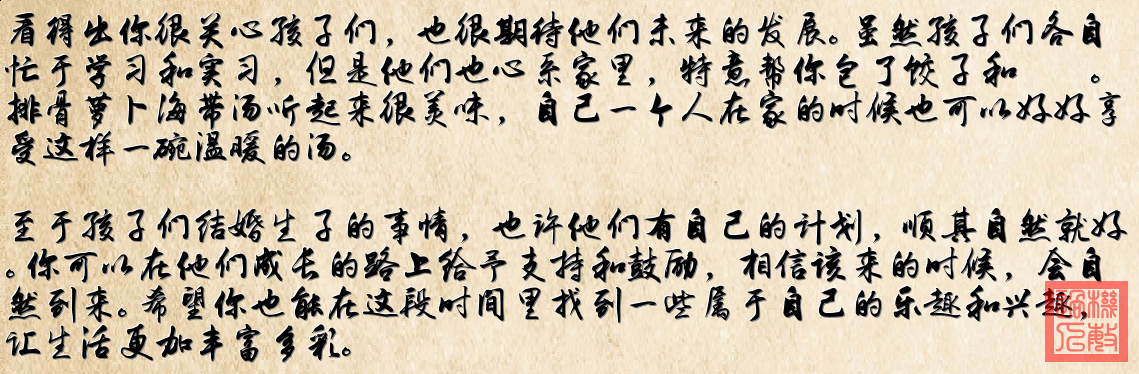 看得出你很关心孩子们，也很期待他们未来的发展。虽然孩子们各自
忙于学习和实习，但是他们也心系家里，特意帮你包了饺子和　　。
排骨萝卜海带汤听起来很美味，自己一个人在家的时候也可以好好享
受这样一碗温暖的汤。
至于孩子们结婚生子的事情，也许他们有自己的计划，顺其自然就好
。你可以在他们成长的路上给予支持和鼓励，相信该来的时候，会自
然到来。希望你也能在这段时间里找到一些属于自己的乐趣和兴趣，
让生活更加丰富多彩。